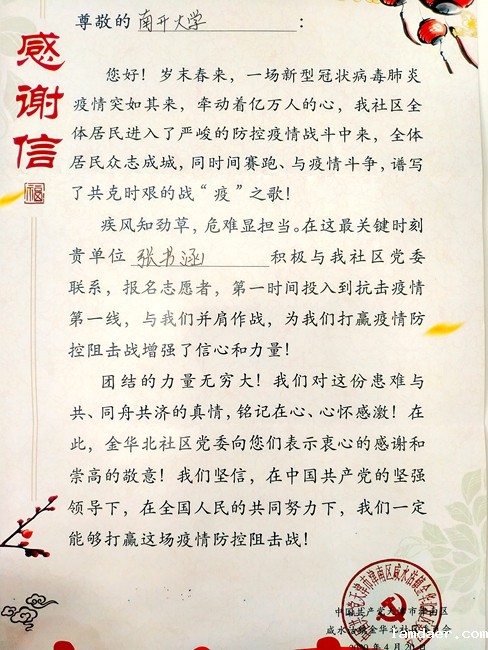 感谢信
福
尊敬的 南开大学：
您好！岁末春来，一场新型冠状病毒肺炎
疫情突如其来，牵动着亿万人的心，我社区全
体居民进入了严峻的防控疫情战斗中来，全体
居民众志成城，同时间赛跑、与疫情斗争，谱写
了共克时艰的战“疫”之歌！
疾风知劲草，危难显担当。在这最关键时刻
贵单位 张书涵 积极与我社区党委
联系，报名志愿者，第一时间投入到抗击疫情
第一线，与我们并肩作战，为我们打赢疫情防
控阻击战增强了信心和力量！
团结的力量无穷大！我们对这份患难与
共、同舟共济的真情，铭记在心、心怀感激！在
此，金华北社区党委向您们表示衷心的感谢和
崇高的敬意！我们坚信，在中国共产党的坚强
领导下，在全国人民的共同努力下，我们一定
能够打赢这场疫情防控阻击战！
中国共产党天津市津南区
咸水沽镇金华北社区委员会
2020年4月20日
lamdaer.com